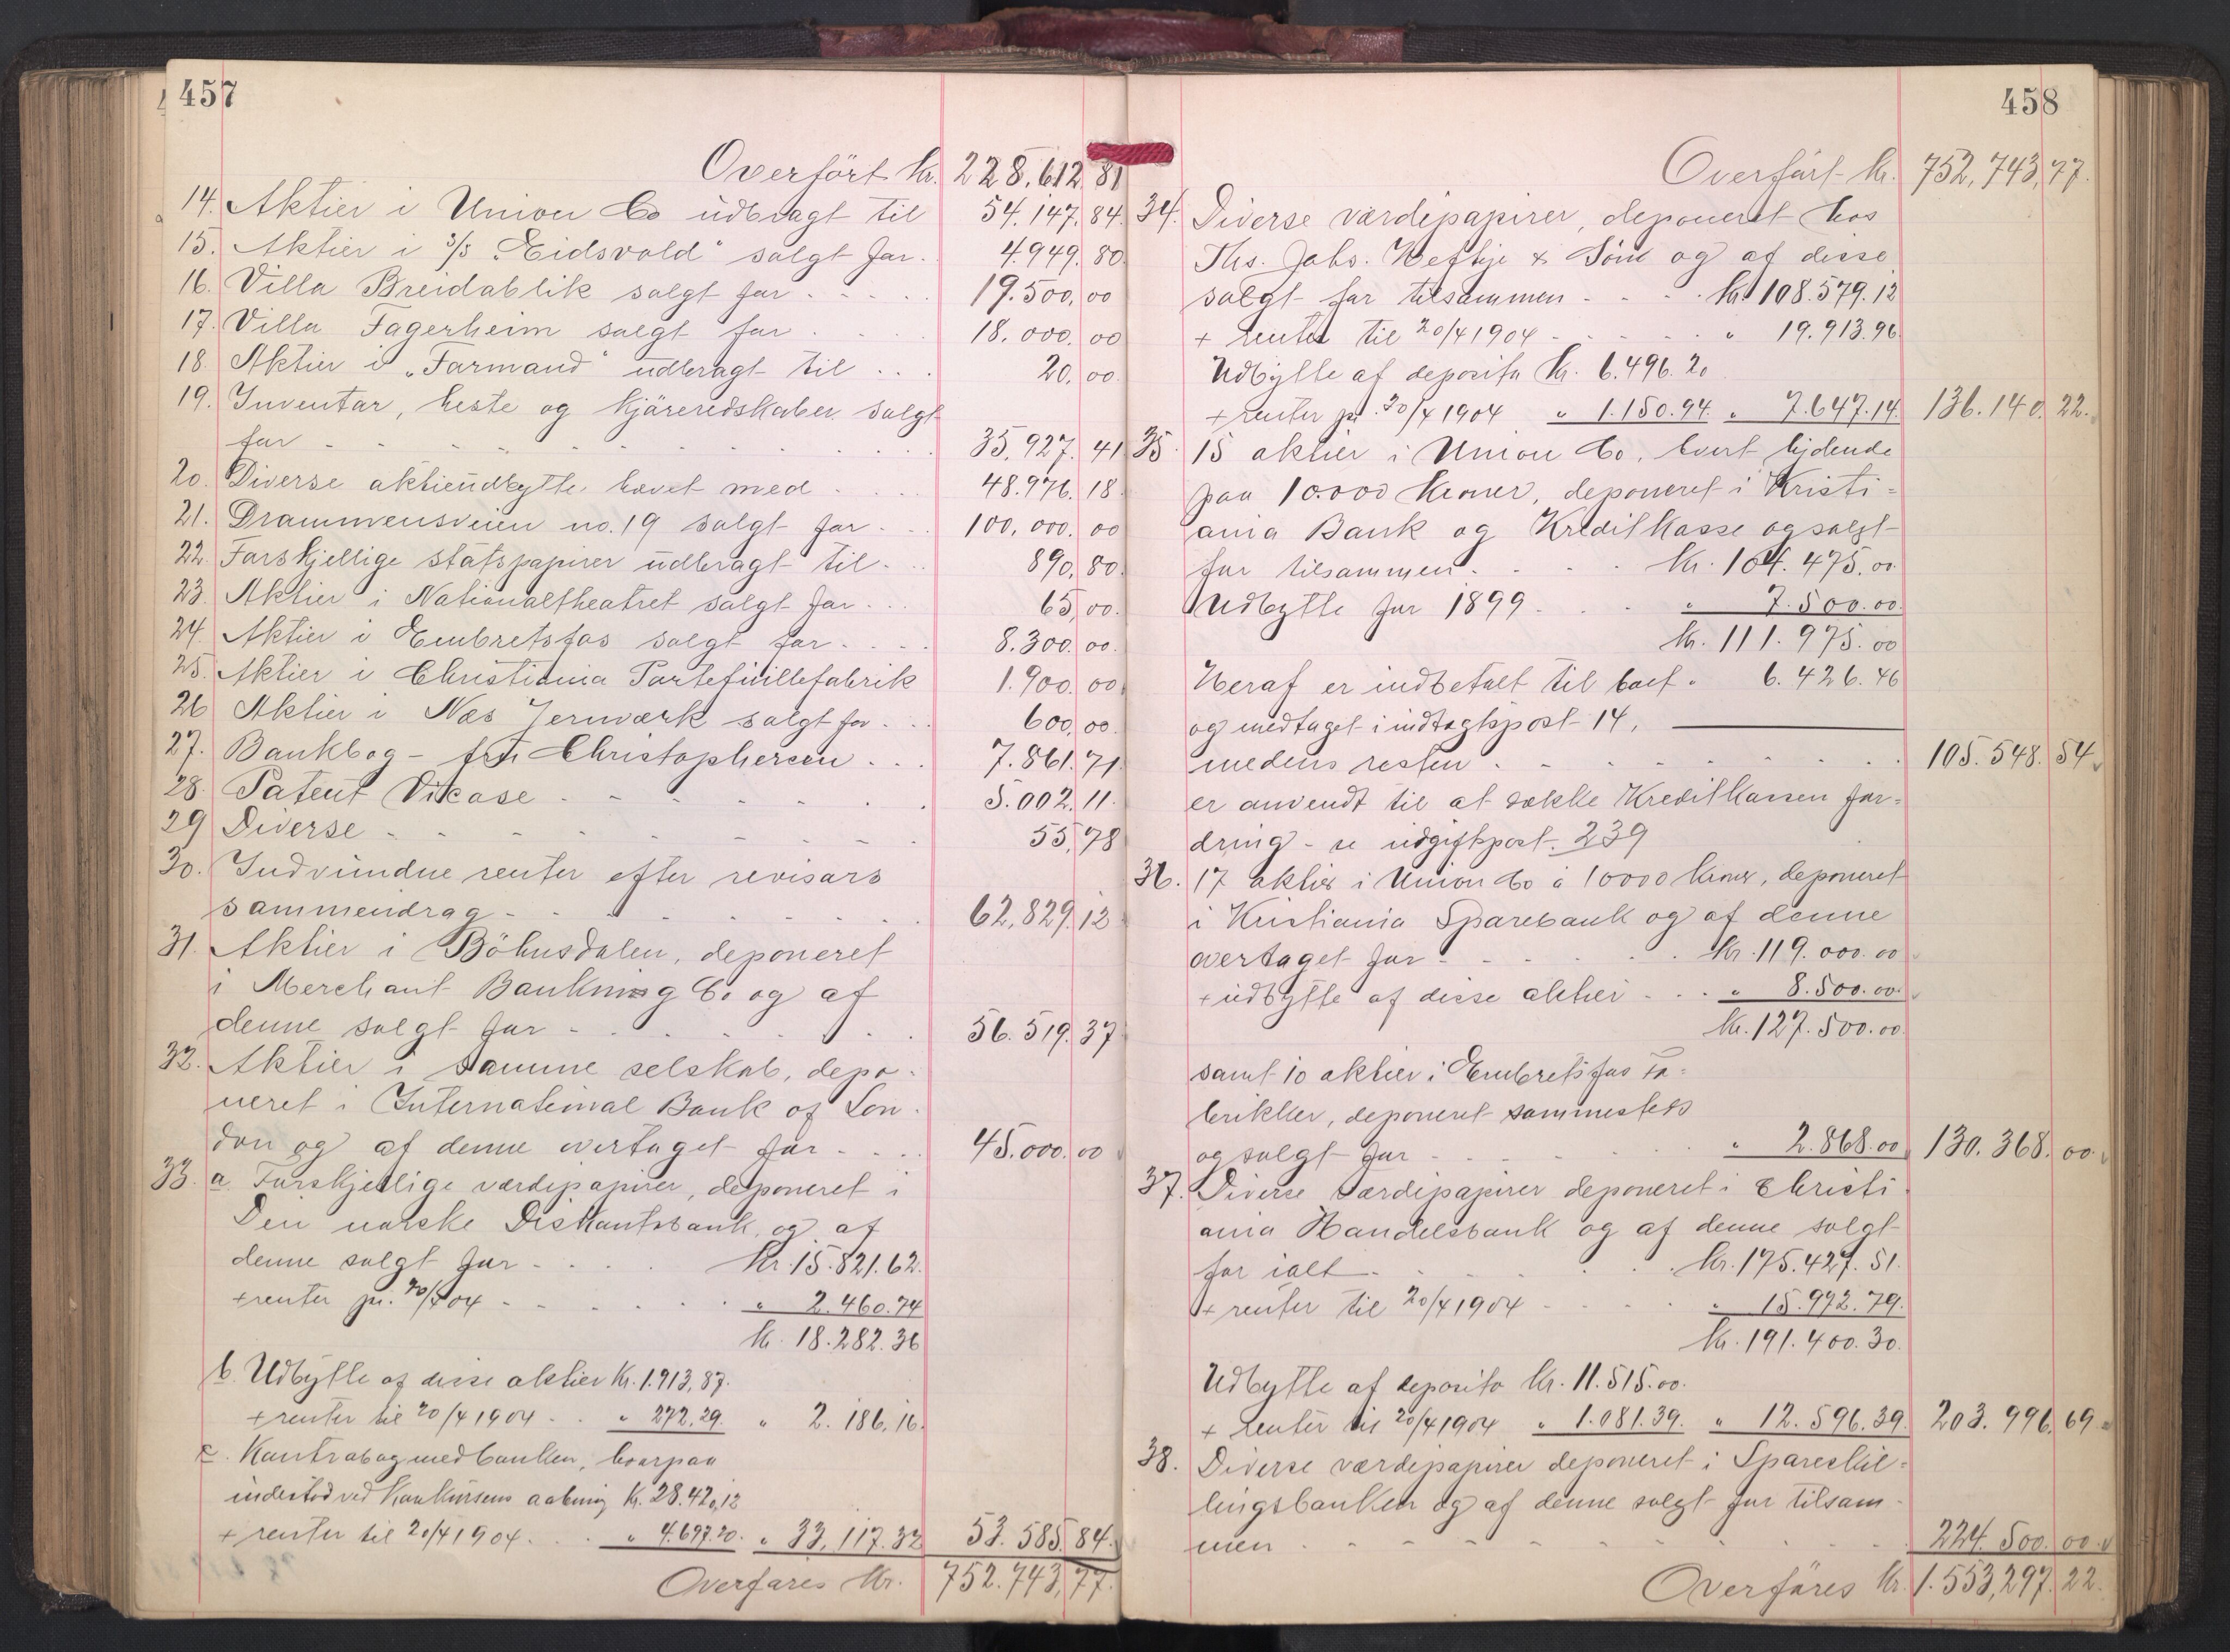 457
Overført Kr. 228.612.81
14. Aktier i Union Co udbragt til 54.147.84.
15. Aktier i S/S "Eidsvold" solgt for. 4.949.80.
16. Villa Breidablik solgt for - - - - 19.500.00
17. Villa Fagerheim solgt for . . . 18.000.00
18. Aktier i "Farmand" udbragt til . . . 20.00.
19. Inventar, heste og kjøreredskaber solgt
for - - - - - - 35.927.41
20. Diverse aktieudbytte hævet med . . . 48.976.18.
21. Drammensveien no. 19 solgt for . . . 100.000.00
22. Forskjellige statspapirer udbragt til . . . 890.80.
23. Aktier i Nationaltheatret solgt for . . . 65,00.
24. Aktier i Embretsfos solgt for . . . 8.300.00.
25. Aktier i Christiania Porteføillefabrik 1.900.00.
26 Aktier i Næs Jernværk solgt for . . . 600,00.
27. Bankbog - frk Christophersen . . . 7.861.71.
28. Patent Vicose - - - - 5.002.11.
29 Diverse - - - - 55,78
30. Indvundne renter efter revisors
sammendrag - - - - 62.829.13
31. Aktier i Böhnsdalen, deponeret
i Merchant Banking Co og af
denne solgt for - - - - 56.519.37
32. Aktier i samme selskab, depo-
neret i International Bank of Lon-
don og af denne overtaget for . . . 45.000.00
33. a. Forskjellige værdipapirer, deponeret i
Den norske Diskontobank og af
denne solgt for - . . . Kr. 15.821.62.
+ renter pr. 20/4 04 - - - - " 2.460.74
Kr. 18.282.36
b. Udbytte af disse aktier Kr. 1.913,87.
+ renter til 20/4 1904 - . " 272.29. " 2.186,16.
c. Kontrabog med banken, hvorpaa
indestod ved konkursens aabning Kr. 28.420,12
+ renter til 20/4 1904 . . " 4.697.20. " 33,117.32 53.585.84.
Overføres Kr. 752.743,77.
458
Overført Kr. 752,743,77.
34. Diverse værdipapirer, deponeret hos
Ths. Johs. Heftye & Søn og af disse
solgt for tilsammen - - - - Kr. 108.579.12
+ renter til 20/4 1904 - - - - " 19.913.96.
Udbytte af deposita Kr. 6.496.20
+ renter pr. 20/4 1904 " 1.150.94. " 7.647.14. 136.140.22.
35. 15 aktier i Union Co, hver lydende
paa 10.000 kroner, deponeret i Kristi-
ania Bank og Kreditkasse og solgt
for tilsammen - - - - Kr. 104.475.00
Udbytte for 1899 - . . . " 7.500.00.
Kr. 111.975.00
Heraf er indbetalt til boet " 6.426.46
og medtaget i indtægtspost 14,
medens resten - - - - 105.548.54
er anvendt til at dække Kreditkassen for-
dring - se udgiftspost. 239
36. 17 aktier i Union Co à 10000 kroner, deponeret
i Kristiania Sparebank og af denne
overtaget for - - - - Kr. 119.000.00
+ udbytte af disse aktier - . . . " 8.500.00.
Kr. 127.500.00.
samt 10 aktier i Embretsfos Fa-
brikker, deponeret sammesteds
og solgt for - - - - " 2.868.00 130.368.00.
37. Diverse værdipapirer deponeret i Christi-
ania Handelsbank og af denne solgt
for ialt - - - - Kr. 175.427.51.
+ renter til 20/4 1904 - - - - " 15.972.79.
Kr. 191.400.30.
Udbytte af deposita Kr. 11.515.00.
+ renter til 20/4 1904 " 1.081.39. " 12.596.39. 203.996.69
38. Diverse værdipapirer deponeret i Spareskil-
lingsbanken og af denne solgt for tilsam-
men - - - - 224.500.00
Overføres Kr. 1.553,297.22.